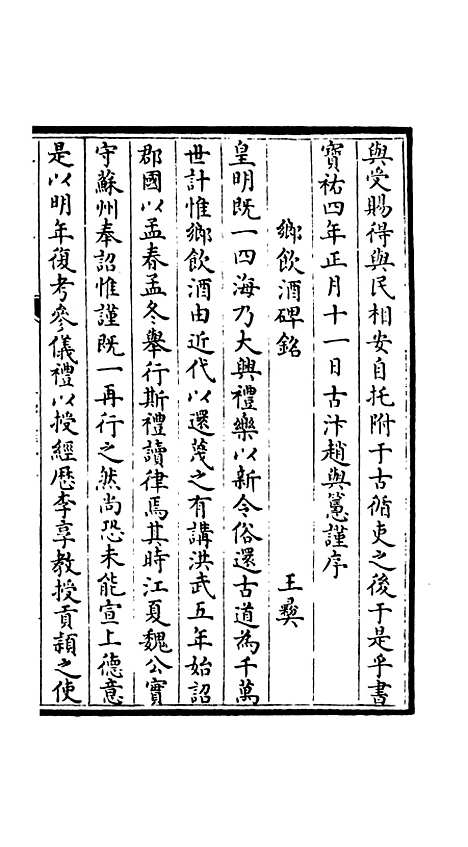 與受賜得與民相安自托附于古循吏之後于是乎書
寳祐四年正月十一日古汴趙與𥲅謹序
鄉飲酒碑銘　王彛
皇明既一四海乃大興禮樂以新令俗還古道為千萬
世計惟鄉飲酒由近代以還蔑之有講洪武五年始詔
郡國以孟春孟冬舉行斯禮讀律焉其時江夏魏公實
守蘇州奉詔惟謹既一再行之然尚恐未能宣上德意
是以明年復考參儀禮以授經歴李亨教授貢頴之使